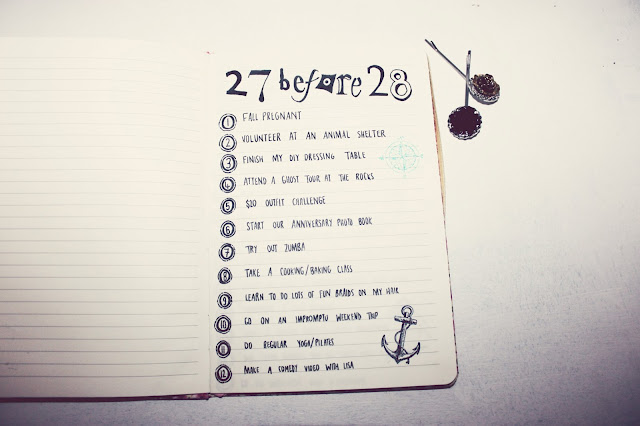 27 before 28
1 FALL PREGNANT
2 VOLUNTEER AT AN ANIMAL SHELTER
3 FINISH MY DIY DRESSING TABLE
4 ATTEND A GHOST TOUR AT THE ROCKS
5 $20 OUTFIT CHALLENGE
6 START OUR ANNIVERSARY PHOTO BOOK
7 TRY OUT ZUMBA
8 TAKE A COOKING/BAKING CLASS
9 LEARN TO DO LOTS OF FUN BRAIDS ON MY HAIR
10 GO ON AN IMPROMPTU WEEKEND TRIP
11 DO REGULAR YOGA/PILATES
12 MAKE A COMEDY VIDEO WITH LISA